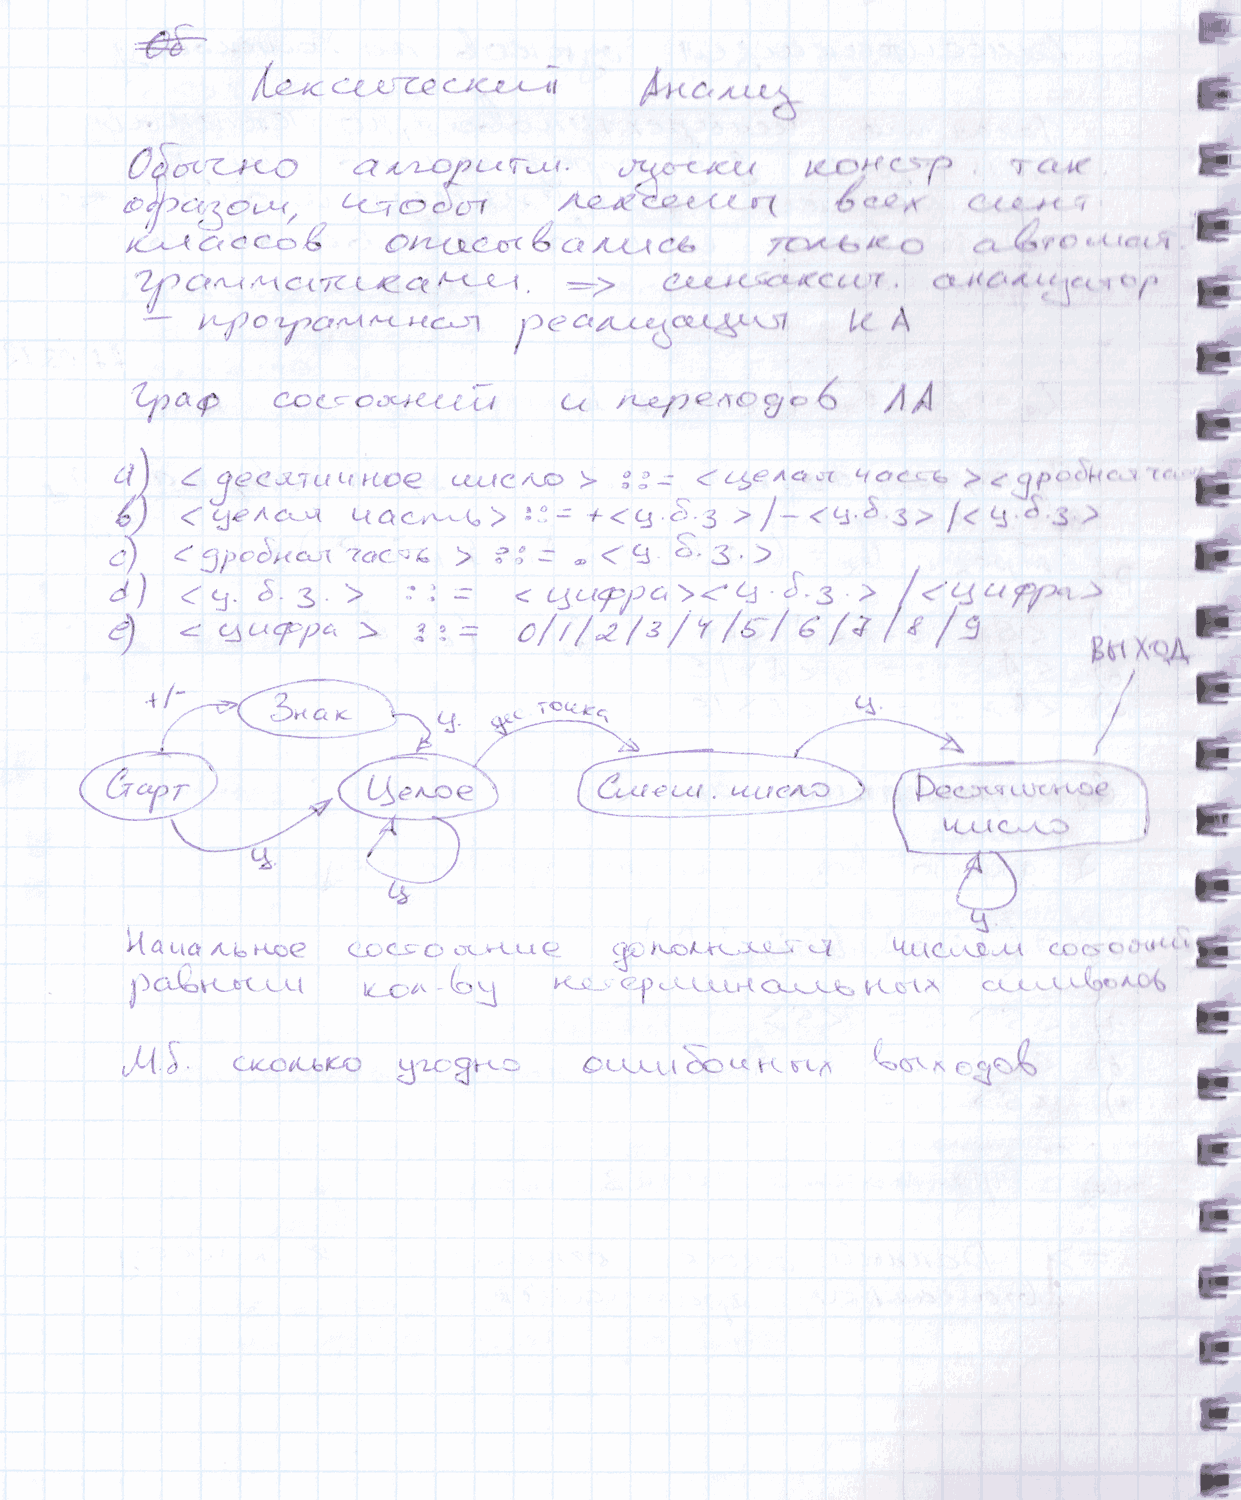 Об
Лексический Анализ
Обычно алгоритм. языки констр. так
образом, чтобы лексемы всех синт.
классов описывались только автомат.
грамматиками. => синтаксич. анализатор
– программная реализация КА
Граф состояний и переходов ЛА
a) <десятичное число> ::= <целая часть><дробная час
b) <целая часть> ::= +<ц.б.з>/–<ц.б.з>/<ц.б.з.>
c) <дробная часть> ::= .<ц.б.з.>
d) <ц.б.з.> ::= <цифра><ц.б.з.>/<цифра>
e) <цифра> ::= 0/1/2/3/4/5/6/7/8/9
ВЫХОД
+/- Знак ц. точка ц.
Старт Целое Смеш. число Десятичное
число
ц.
ц
ц.
Начальное состояние дополняется числом состояний
равными кол-ву нетерминальных символов
М.б. сколько угодно ошибочных выходов